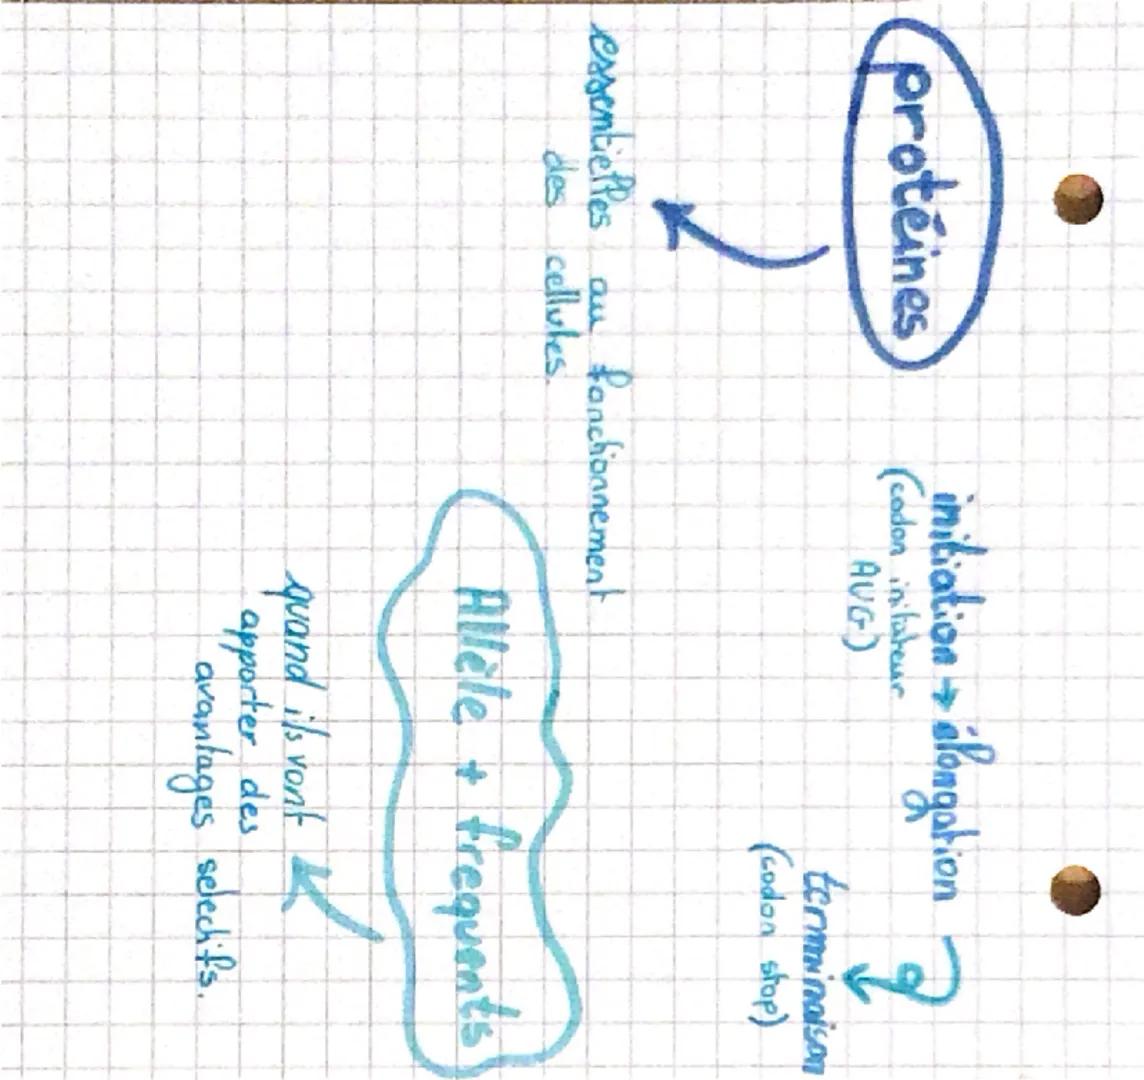 protéines
essentielles au fonctionnement
des cellules.
initiation → élongation
(codon initiateur
AUG)
terminaison
(codon stop)
Allèle + frequents
quand ils vont
apporter des
avantages selectifs.